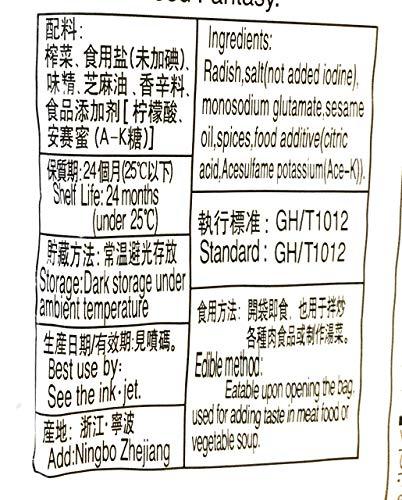 Fantasy.
配料:
榨菜、食用盐(未加碘)、
味精、芝麻油、香辛料、
食品添加剂[柠檬酸、
安赛蜜 (A-K糖)]
保質期: 24個月(25℃以下)
Shelf Life: 24 months
(under 25℃)
貯藏方法: 常温避光存放
Storage:Dark storage under
ambient temperature
生産日期/有效期:見噴碼。
Best use by:
See the ink·jet.
産地: 浙江·寧波
Add:Ningbo Zhejiang
Ingredients:
Radish,salt(not added iodine),
monosodium glutamate,sesame
oil,spices,food additive(citric
acid,Acesulfame potassium(Ace-K)).
執行標准: GH/T1012
Standard: GH/T1012
食用方法: 開袋即食, 也用于拌炒
各種肉食品或制作湯菜。
Edible method:
Eatable upon opening the bag,
used for adding taste in meat food or
vegetable soup.